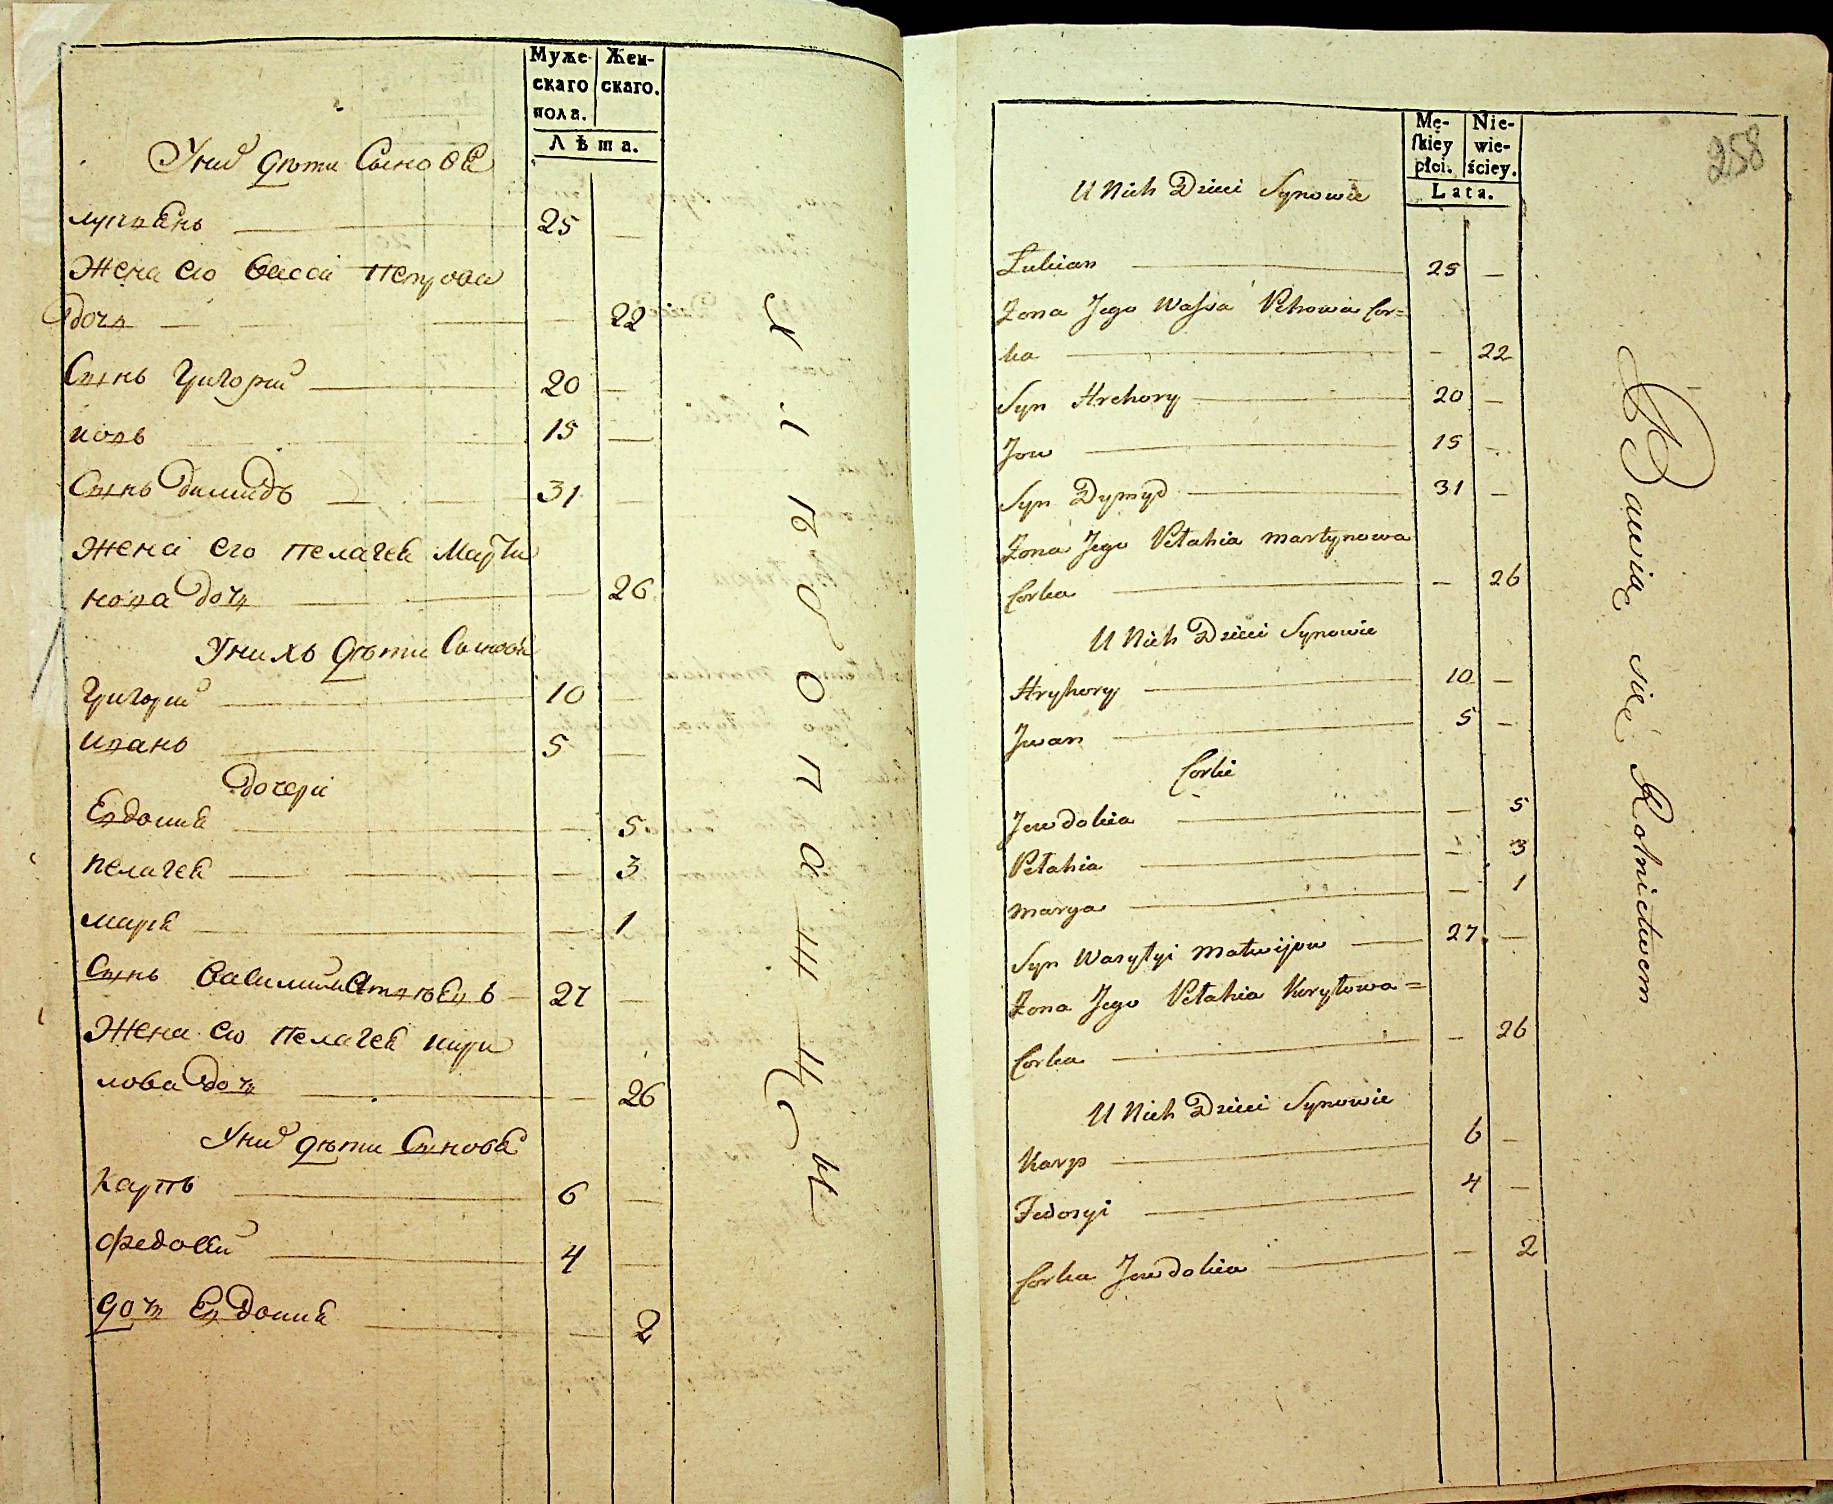 Муже-
скаго
пола.
Жен-
скаго.
Лѣта.
Унихъ дѣти Сынове
лукiянъ 25 —
Жена его Васса Петрова
дочь — 22
Сынъ Григорий 20 —
иовъ 15 —
Сынъ димидъ 31 —
Жена его пелагея Марти
нова дочь — 26
Унихъ дѣти Сынове
Григорий 10 —
иванъ 5 —
дочери
Евдокия — 5
пелагея — 3
маря — 1
Сынъ Василий Матвѣевъ 27 —
Жена его пелагея кири
лова дочь — 26
Унихъ дѣти Сынове
Карпъ 6 —
Федосий 4 —
дочь Евдокия — 2
258
Mę-
skiey
płci.
Nie-
wie-
ściey.
Lata.
U Nich Dzieci Synowie
Łukian 25 —
Żona Jego Wassa Petrowa Cor=
ka — 22
Syn Hrehory 20 —
Jow 15 —
Syn Dymyd 31 —
Żona Jego Pełahia Martynowa
Corka — 26
U Nich Dzieci Synowie
Hryhory 10 —
Jwan 5 —
Corki
Jewdokia — 5
Pełahia — 3
Marya — 1
Syn Wasylyi Matwijow 27 —
Żona Jego Pełahia Kiryłowa=
Corka — 26
U Nich Dzieci Synowie
Karp 6 —
Fedosyi 4 —
Corka Jewdokia — 2
Bawią się Rolnictwem